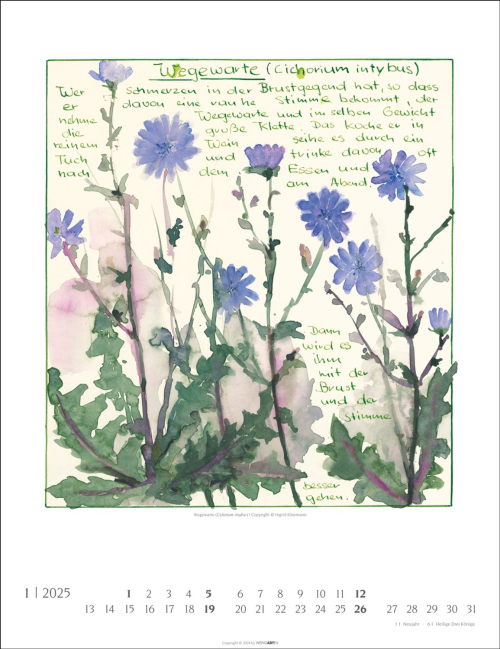 Wegewarte (Cichorium intybus)
Wer Schmerzen in der Brustgegend hat, so dass
er davon eine rauhe Stimme bekommt, der
nehme Wegewarte und im selben Gewicht
die große Klette. Das koche er in
reinem Wein seihe es durch ein
Tuch und trinke davon oft
nach dem Essen und
am Abend
Dann
wird es
ihm
mit der
Brust
und der
Stimme
besser
gehen.
Wegewarte (Cichorium intybus) | Copyright ©
1 | 2025
1 2 3 4 5 6 7 8 9 10 11 12
13 14 15 16 17 18 19 20 21 22 23 24 25 26 27 28 29 30 31
1.1. Neujahr · 6.1. Heilige Drei Könige